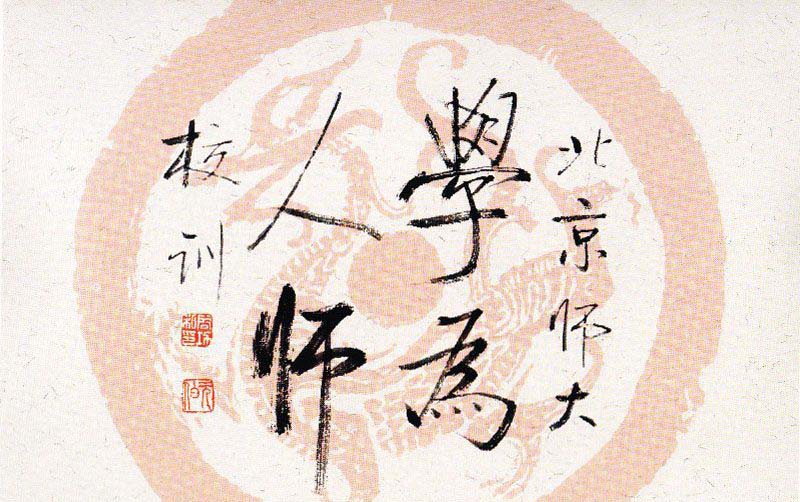 北京师大
學為
人师
校训